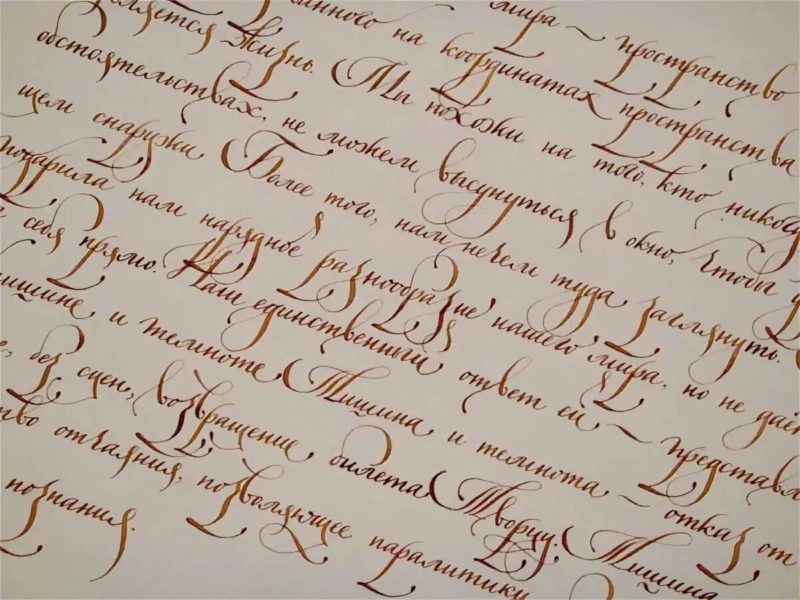 мира ~ пространство
анного на координатах пространства
вляется жизнь. Мы похожи на того, кто никогд
обстоятельствах, не можем высунуться в окно, чтобы
щем снаружи. Более того, нам нечем туда заглянуть.
подарила нам нарядное разнообразие нашего мира, но не даёт
себя прямо. Наш единственный ответ ей ~ представл
тишине и темноте. Тишина и темнота ~ отказ от
е, без сцен, возвращение билета Творцу. Тишина
ство отчаяния, позволяющее паралитику
познания.